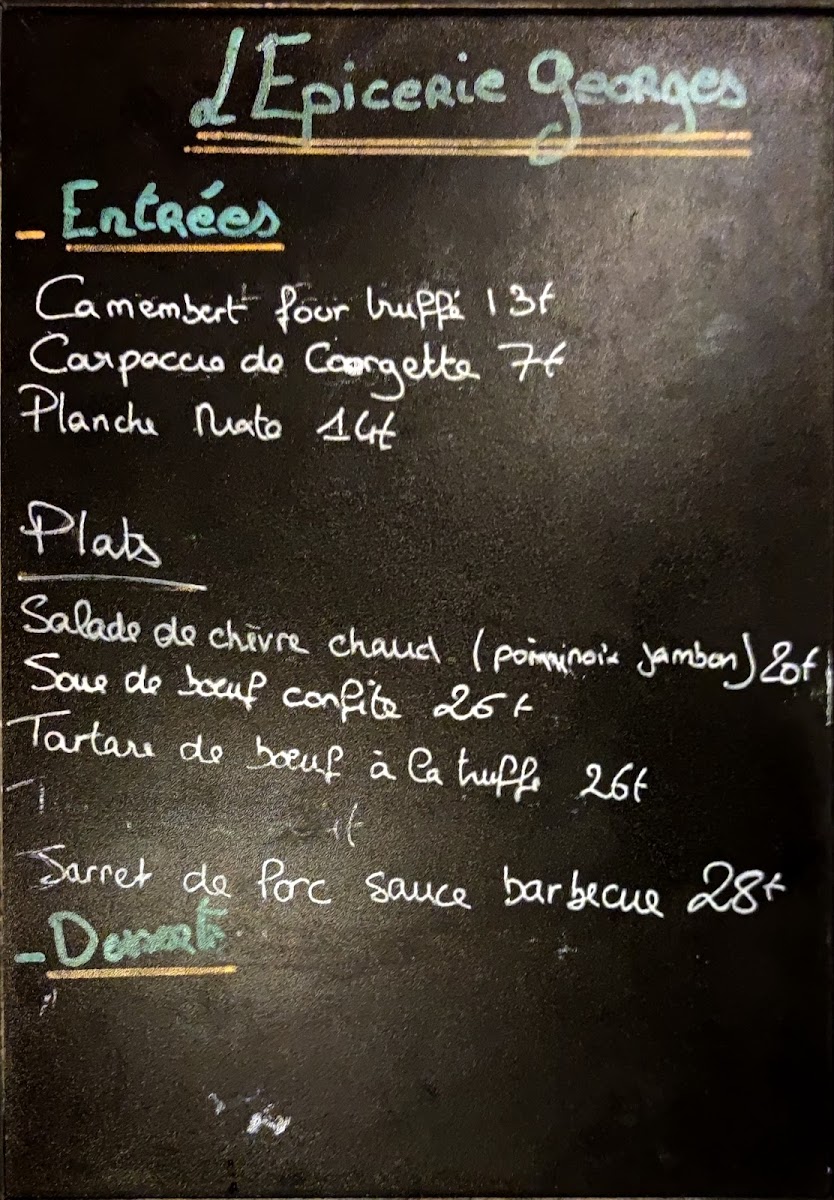 L'Epicerie Georges
- Entrées
Camembert four truffé 13€
Carpaccio de Courgette 7€
Planche Mato 14€
Plats
Salade de chèvre chaud (poire, noix jambon) 20€
Joue de boeuf confite 26€
Tartare de boeuf à la truffe 26€
Jarret de Porc sauce barbecue 28€
- Dessert